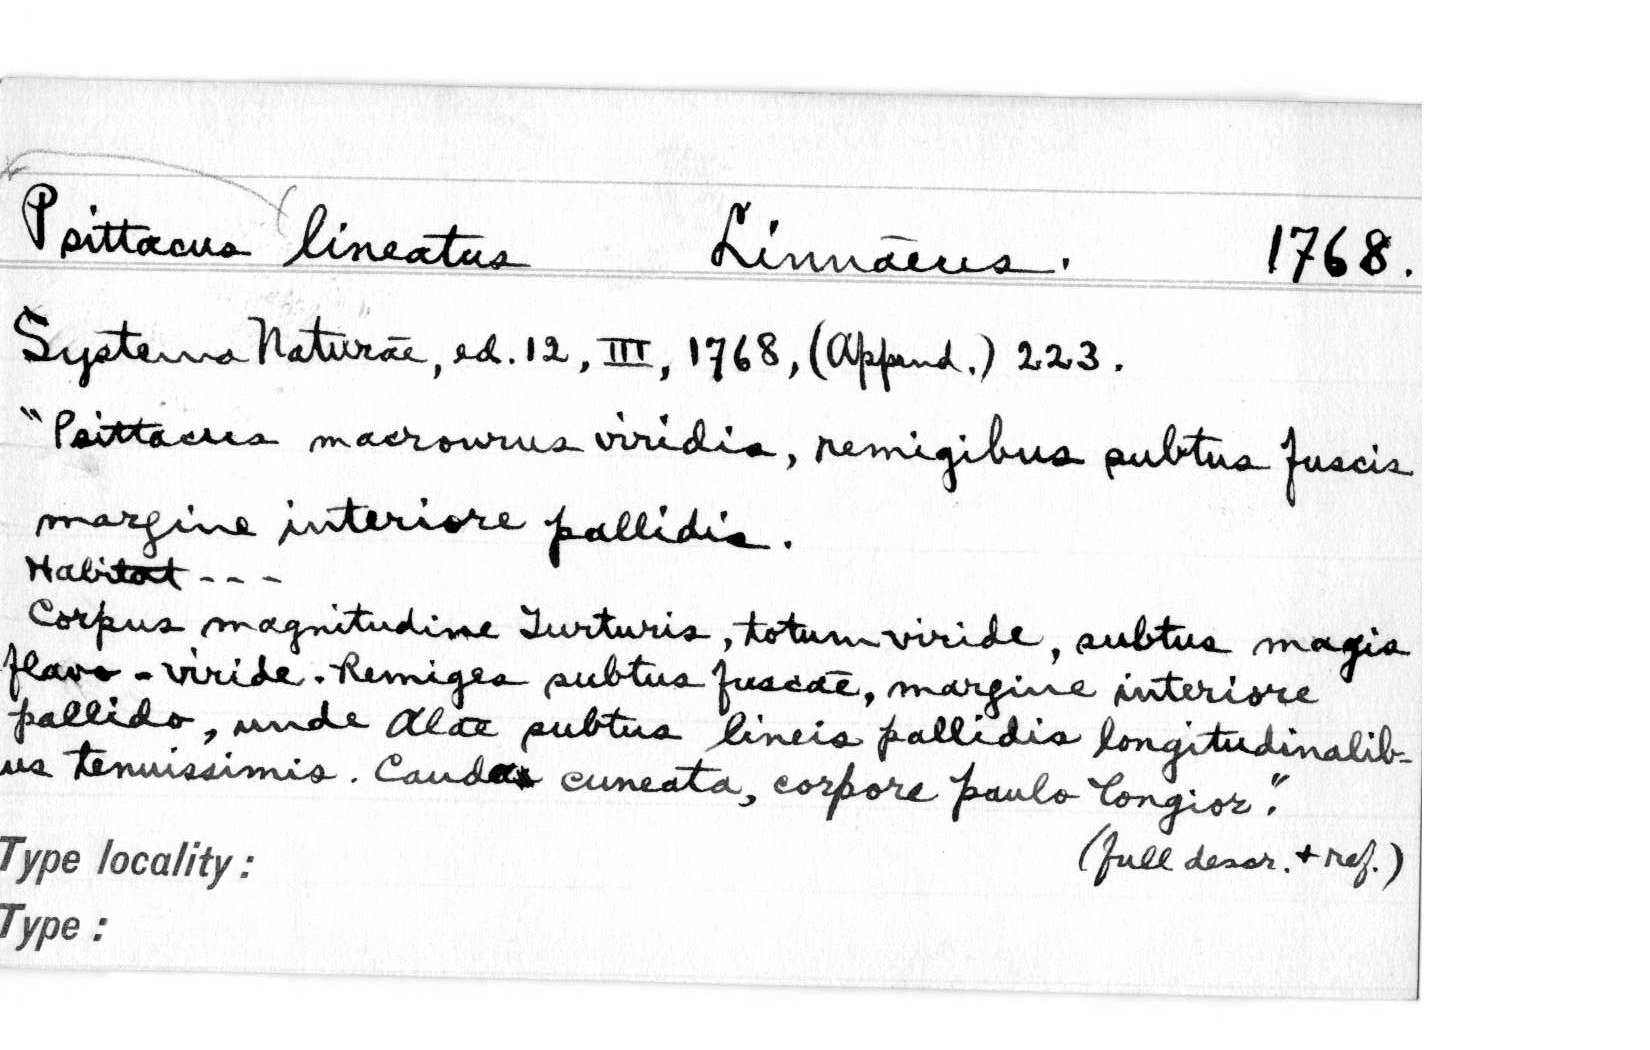 Psittacus lineatus Linnāeus. 1768.
Systema Naturāe, ed. 12, III, 1768, (Append.) 223.
"Psittacus macrourus viridis, remigibus subtus fuscis
margine interiore pallidis.
Habitat - - -
Corpus magnitudine Turturis, totum viride, subtus magis
flavo-viride. Remiges subtus fuscāe, margine interiore
pallido, unde Alāe subtus lineis pallidis longitudinalib-
us tenuissimis. Cauda cuneata, corpore paulo longior."
(full descr. + ref.)
Type locality:
Type: